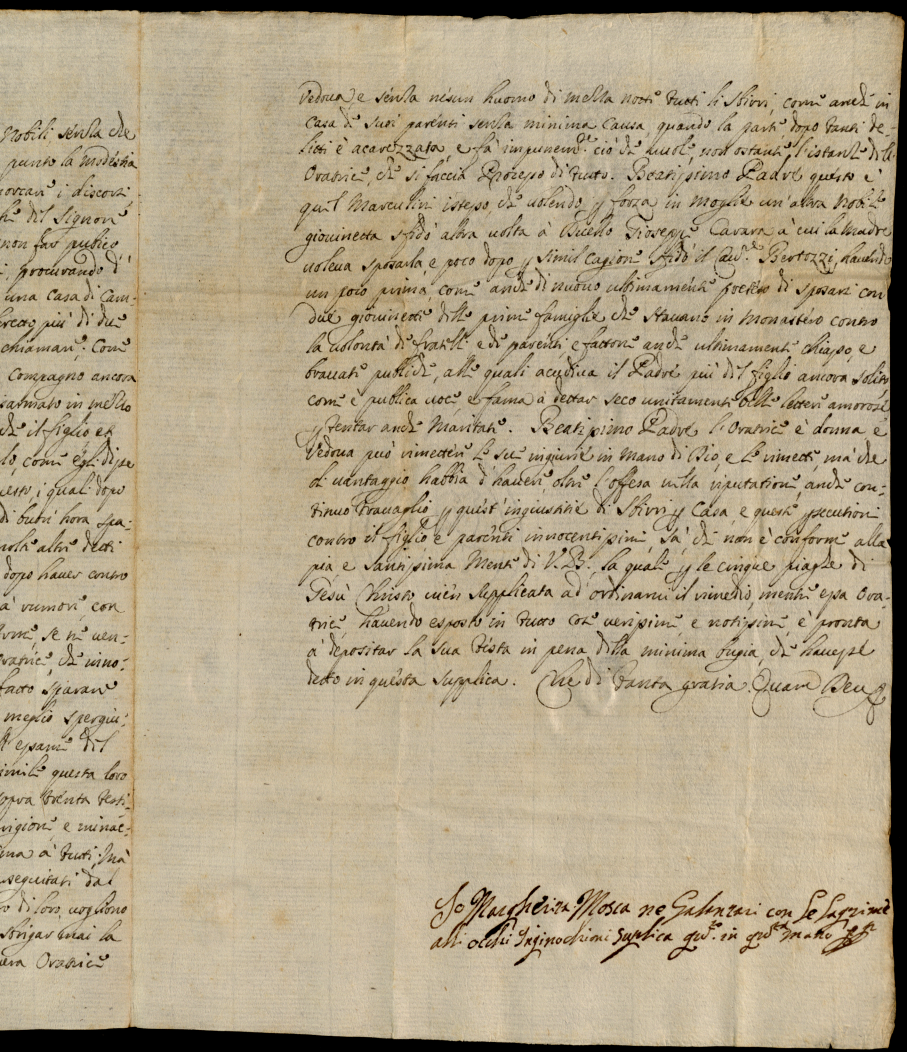 Nobili, senza che
punto la modestia
i discorsi
del Signore
non far publico
, procurando d'
una casa di Cam-
più di due
chiamare; Come
Compagno ancora
in mezzo
che il figlio et
lo, come egli dipe
questo, i quali dopo
di butri hora spa-
molti altri detti
dopo haver contro
à rumori, con
se ne ven-
Oratrice, che inno-
facto sparare
meglio spergiu-
esame del
simile questa loro
sopra trenta testi-
prigione, e minac-
à tutti; Mà
perseguitati dal
di loro, vogliono
mai la
Oratrice
Vedova) e senza nesun huomo di mezza notte tutti li sbirri, come anche in
casa de suoi parenti senza minima causa, quando la parte dopo tanti de-
litti è acarezzata, e fà impunemte ciò che vuole, non ostante l'istanze della
Oratrice, che si faccia Processo di tutto. Beatissimo Padre questo è
quel Marculini istesso, che volendo p forza in moglie un'altra nobile
giovinetta sfidò altra volta à Duello Gioseppe Cavara à cui la Madre
voleva sposarla, e poco dopo p simil cagione sfidò il Cavre Bertozzi, havendo
un poco prima, come anche di nuovo ultimamente preteso di sposarsi con
due giovinette delle prime famiglie che stavano in Monastero contro
la volontà de fratelli e de parenti e factone anche ultimamente chiasso, e
bravate publiche, alle quali acudiva il Padre più del figlio ancora solito
come è publica voce e fama à dettar seco unitamente belle lettere amorose
p tentar anche Maritate. Beatissimo Padre l'Oratrice è donna e
Vedova può rimettere le sue ingiurie in mano di Dio, e le rimette, mà che
di vantaggio habbia d'havere oltre l'offesa nella riputatione, anche con-
tinuo travaglio p quest'ingiustitie di Sbirri p Casa, e queste persecutioni
contro il figlio e parenti innocentissimi, sà, che non è conforme alla
pia e Santissima Mente di V. B. la quale p le cinque piaghe di
Giesù Christo vien supplicata ad ordinarne il rimedio, mentre essa Ora-
trice, havendo esposto in tutto cose verissime, e notissime, è pronta
à depositar la sua testa in pena della minima bugia, che havesse
detto in questa supplica. Che di tanta gratia. Quare Deus
Io Margherita Mosca ne Galanzari con le lagrime
alli ochi Inginochioni suplica